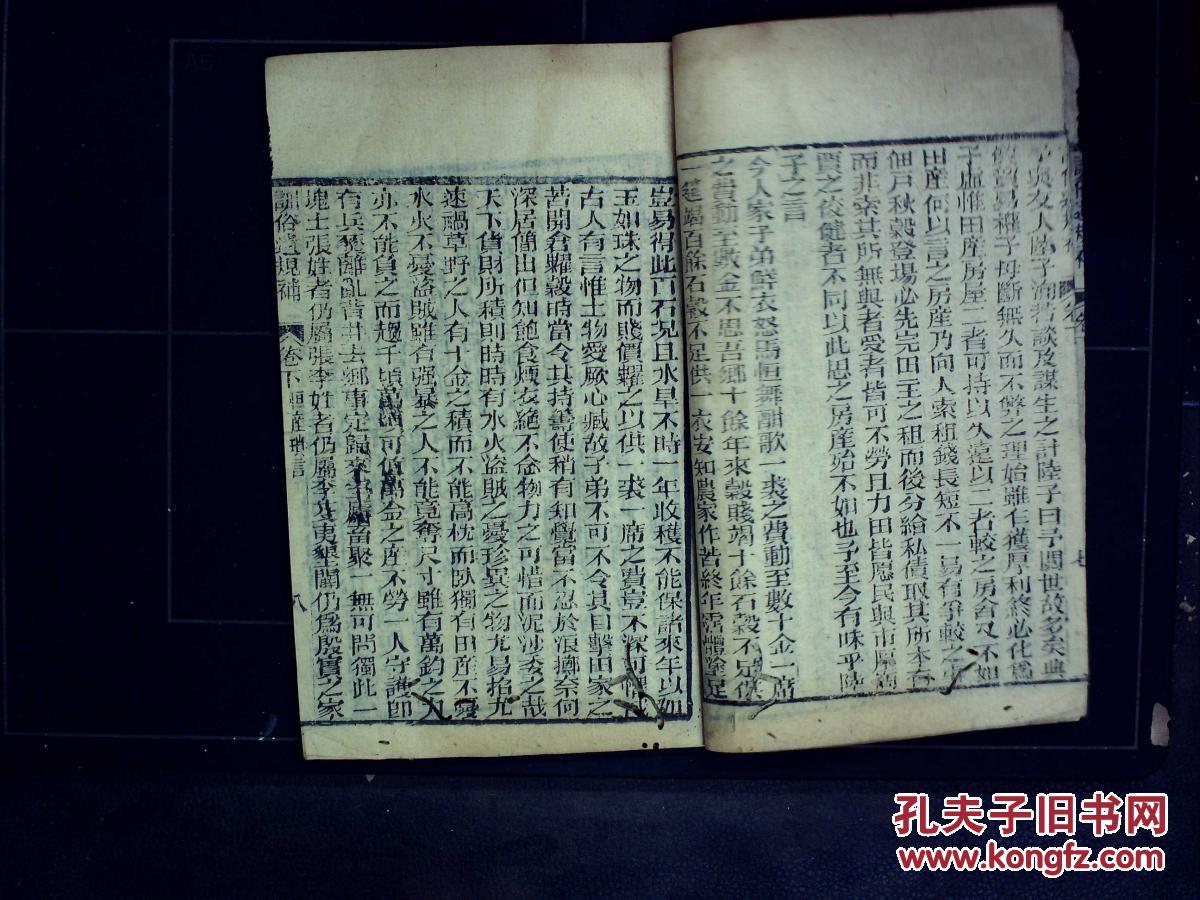 嘗與友人陸子瀾若談及謀生之計陸子曰予閱世故多矣典
質貿易權子母斷無久而不弊之理始雖乍獲厚利終必化爲
子虛惟田產房屋二者可持以久遠以二者較之房舍又不如
田產何以言之房產乃向人索租錢長短不一易有爭較之
佃戶秋穀登場必先完田主之租而後分給私債取其所本有
而非索其所無與者受者皆可不勞且力田皆愿民與市廛商
賈之佼健者不同以此思之房產殆不如也予至今有味乎陸
子之言
今人家子弟鮮衣怒馬恒舞酣歌一裘之費動至數十金一席
之費動至數金不思吾鄉十餘年來穀賤竭十餘石穀不足供
一筵竭百餘石穀不足供一衣安知農家作苦終年霑體塗足
豈易得此百石况且水旱不時一年收穫不能保諸來年以如
玉如珠之物而賤價糶之以供一裘一席之費豈不深可懼哉
古人有言惟土物愛厥心臧故子弟不可不令其目擊田家之
苦開倉糶穀時當令其持籌使稍有知覺當不忍於浪擲奈何
深居簡出但知飽食煖衣絕不念物力之可惜而泥沙委之哉
天下貨財所積則時時有水火盜賊之憂珍異之物尤易招尤
速禍草野之人有十金之積而不能高枕而臥獨有田產不憂
水火不憂盜賊雖有强暴之人不能竟奪尺寸雖有萬鈞之力
亦不能負之而趨千頃萬頃可值萬金之產不勞一人守護卽
有兵燹離亂背井去鄉事定歸來室廬畜聚一無可問獨此一
塊土張姓者仍屬張李姓者仍屬李芟夷墾闢仍爲殷實之家
訓俗遺規補 卷下 恒產瑣言 八
七
孔夫子旧书网
www.kongfz.com